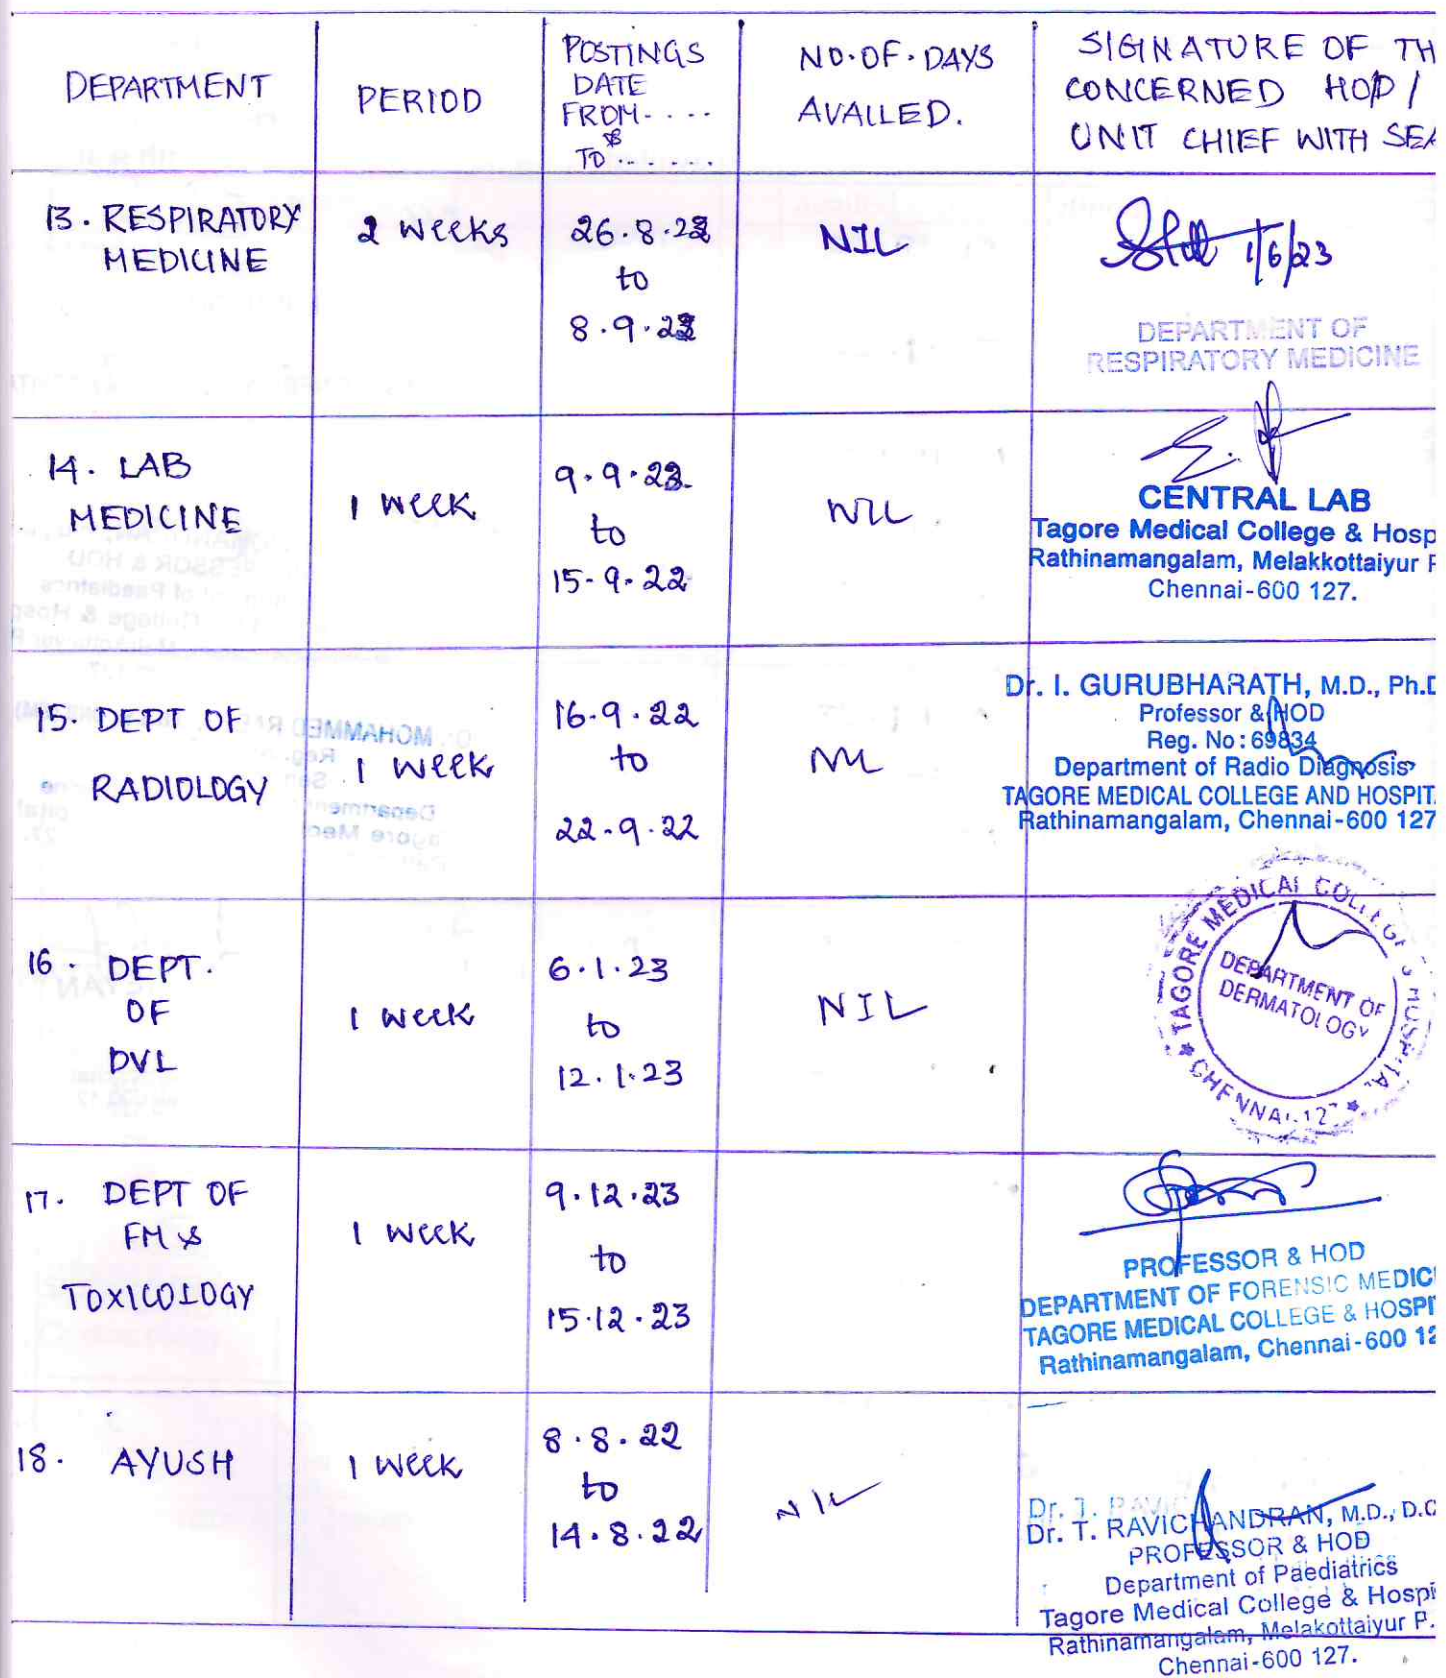 DEPARTMENT
PERIOD
POSTINGS
DATE
FROM- . . .
&
TO . . . . . . .
NO.OF.DAYS
AVAILED.
SIGNATURE OF TH
CONCERNED HOD /
UNIT CHIEF WITH SEA
13. RESPIRATORY
MEDICINE
2 weeks
26.8.22
to
8.9.22
NIL
1/6/23
DEPARTMENT OF
RESPIRATORY MEDICINE
14. LAB
MEDICINE
1 week
9.9.22
to
15-9.22
NIL
CENTRAL LAB
Tagore Medical College & Hosp
Rathinamangalam, Melakkottaiyur P
Chennai-600 127.
15. DEPT OF
RADIOLOGY
1 week
16.9.22
to
22.9.22
NIL
Dr. I. GURUBHARATH, M.D., Ph.D
Professor & HOD
Reg. No : 69834
Department of Radio Diagnosis
TAGORE MEDICAL COLLEGE AND HOSPIT
Rathinamangalam, Chennai-600 127
16. DEPT.
OF
DVL
1 week
6.1.23
to
12.1.23
NIL
TAGORE MEDICAL COLLEGE & HOSPITAL
DEPARTMENT OF
DERMATOLOGY
★ CHENNAI-127 ★
17. DEPT OF
FM &
TOXICOLOGY
1 week
9.12.23
to
15.12.23
PROFESSOR & HOD
DEPARTMENT OF FORENSIC MEDICI
TAGORE MEDICAL COLLEGE & HOSPI
Rathinamangalam, Chennai-600 12
18. AYUSH
1 week
8.8.22
to
14.8.22
NIL
Dr. T. RAVICHANDRAN, M.D., D.C
PROFESSOR & HOD
Department of Paediatrics
Tagore Medical College & Hospi
Rathinamangalam, Melakottaiyur P.
Chennai-600 127.